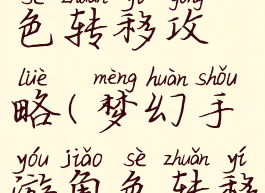 sè zhuǎn yí gōng
色转移攻
lüè mèng huàn shǒu
略(梦幻手
yóu jiǎo sè zhuǎn yí
游角色转移